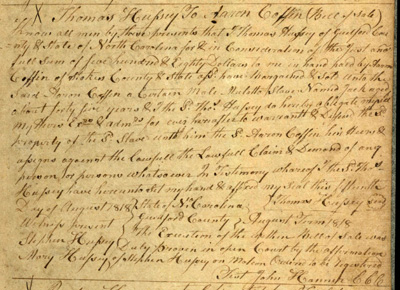 X Thomas Hussey To Aaron Coffin (Bill of Sale)
Know all men by these presents that I Thomas Hussey of Guilford Cou-
nty & State of North Carolina for & in Consideration of the Just and
full Sum of five hundred & Eighty Dollars to me in hand paid by Aaron
Coffin of Stokes County & State afs^d. have Bargained & Sold unto the
Said Aaron Coffin a Certain Male Mulatto Slave Named Jack aged
about forty five years & I the S^d. Tho^s. Hussey do hereby obligate myself
my Heirs Ex^rs. & Adm^rs. for ever hereafter to warrant & Defend the
Property of the S^d. Slave unto him the S^d. Aaron Coffin his Heirs &
assigns against the Lawfull Claim & Demand of any
person or persons whatsoever In Testimony whereof I the S^d. Tho^s.
Hussey have hereunto Set my hand & affixed my Seal this fifteenth
Day of August 1818 State of N. Carolina Thomas Hussey seal
Witness present Guilford County August Term 1818
Stephen Hussey The Execution of the within Bill of Sale was
Mary Hussey Duly proven in open Court by the affirmation
of Stephen Hussey on Motion Ordered to be Registered
Test John Hanner CCC